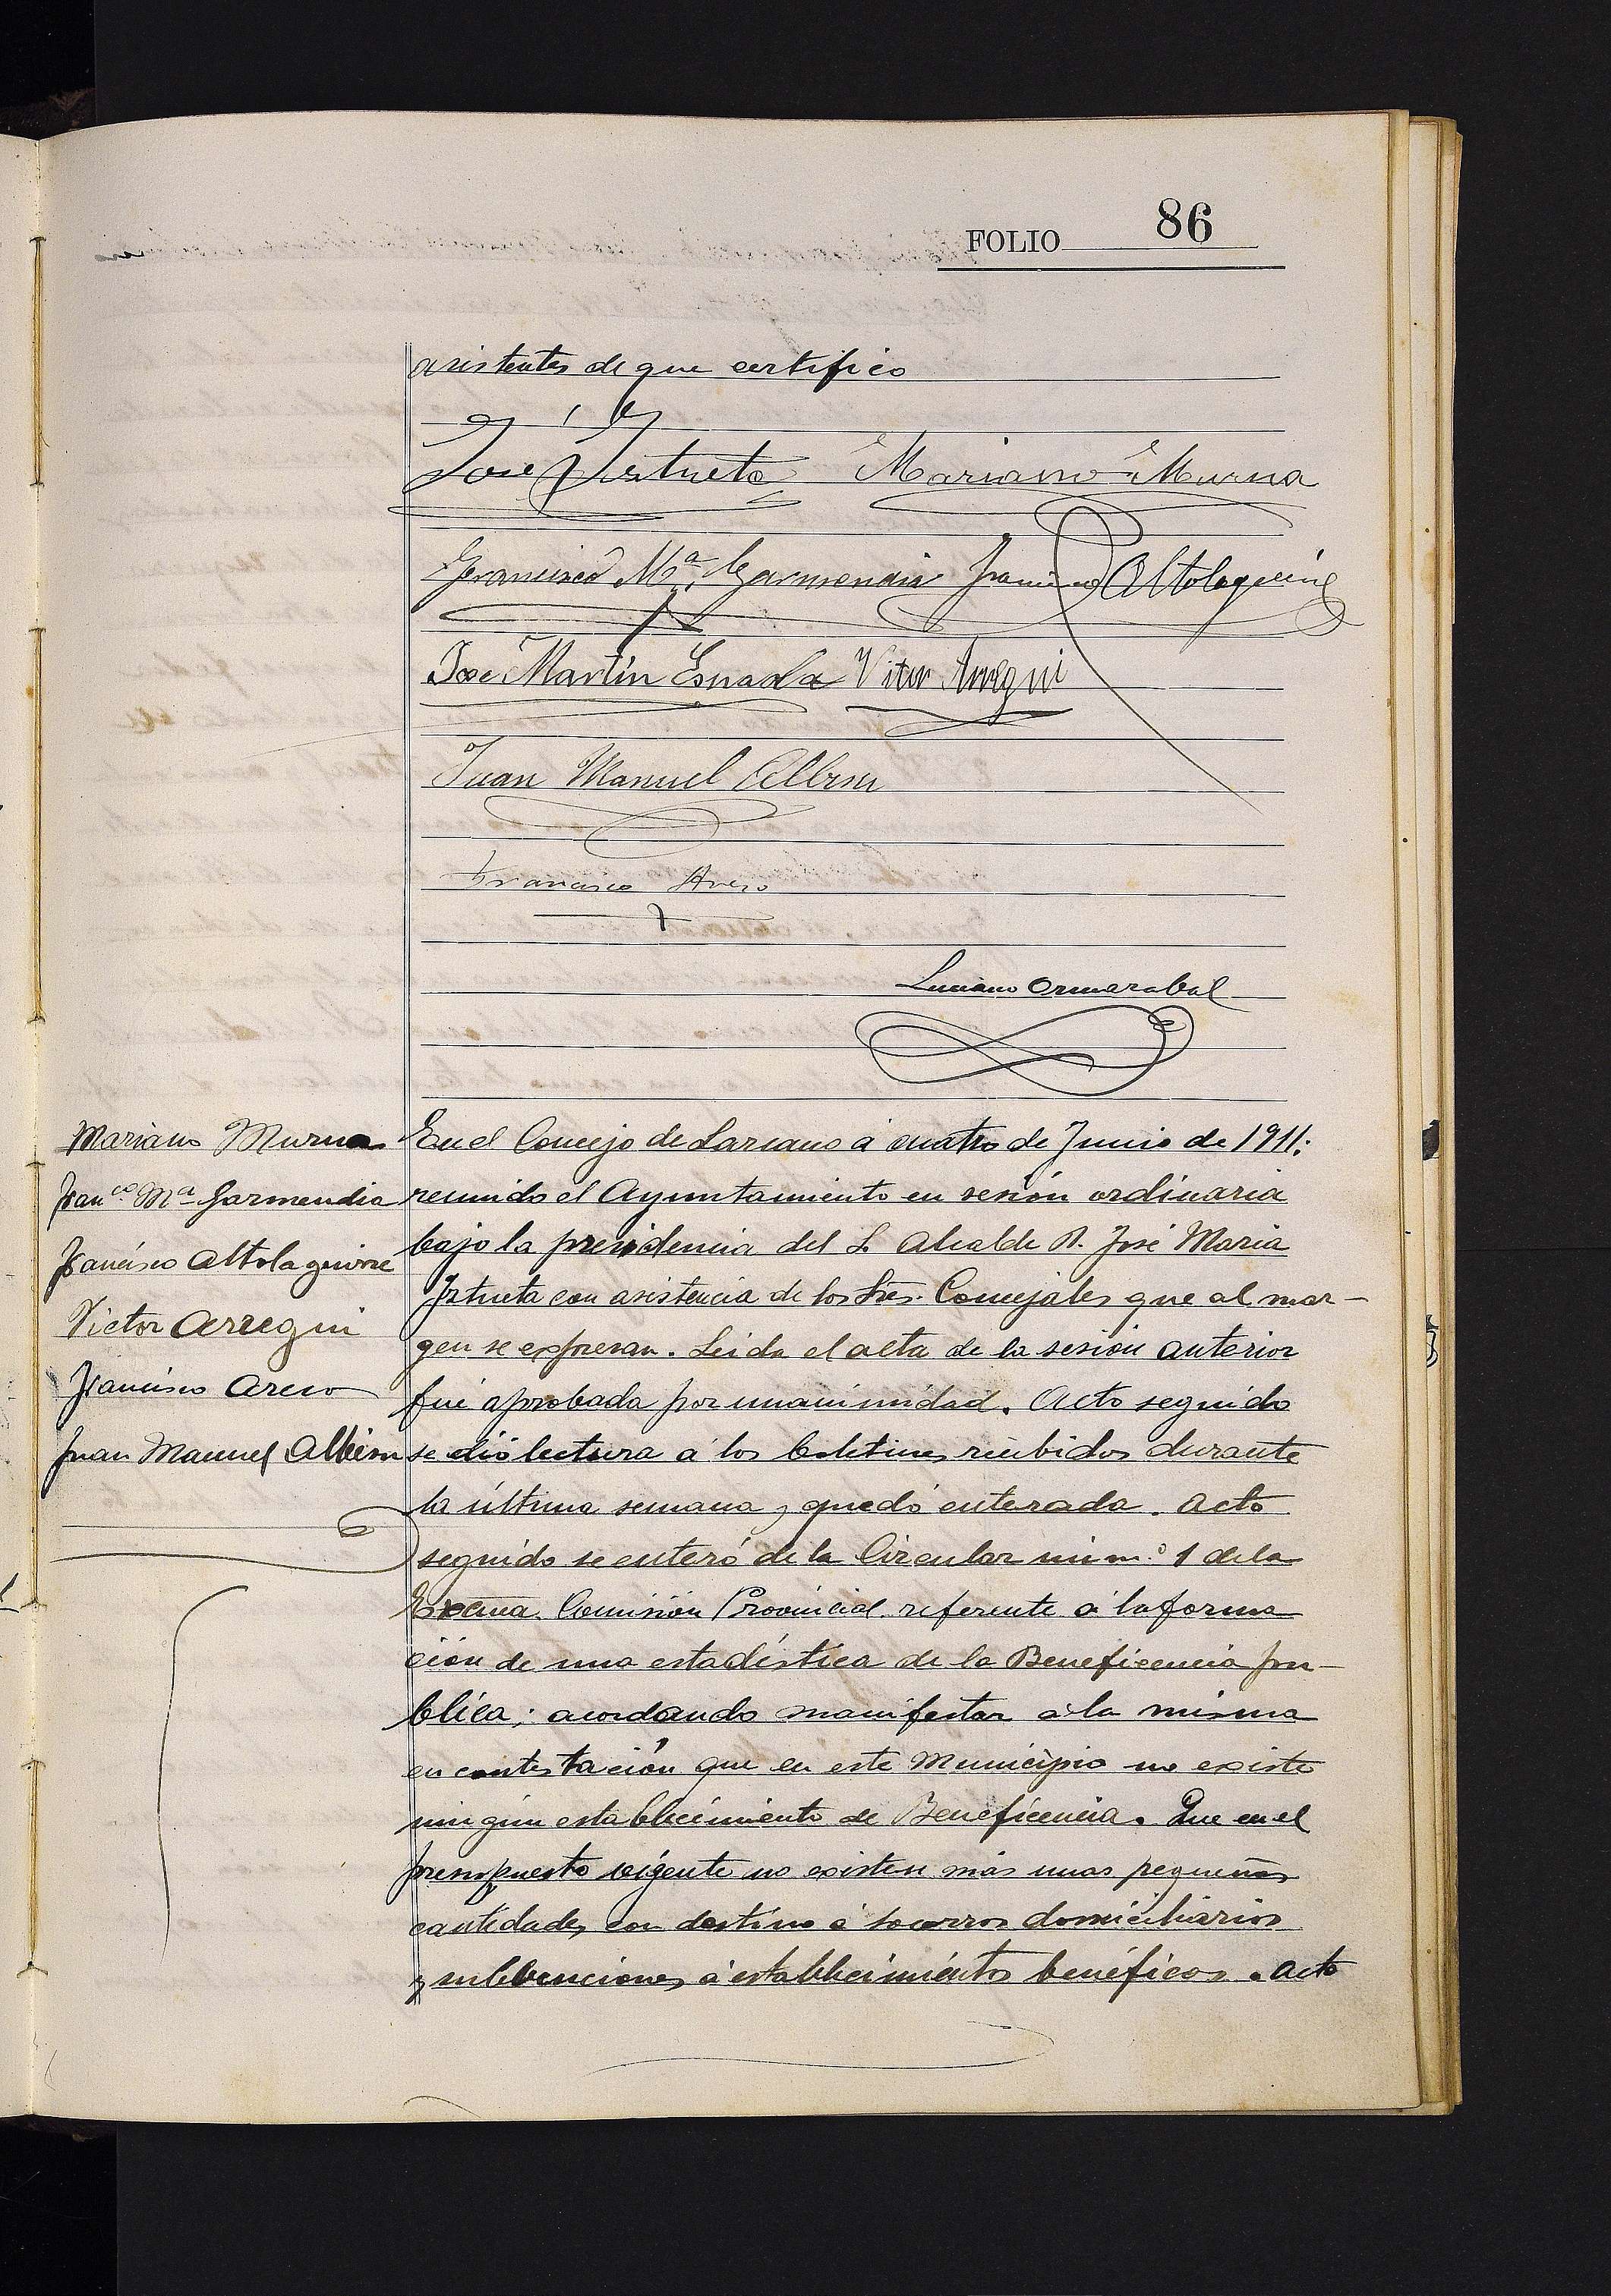 FOLIO 86
asistentes de que certifico
José Iztueta Mariano Murua
Francisco Mª Garmendia Francisco Altolaguirre
Jose Martín Esnaola Vitor Arregui
Juan Manuel Albisu
Francisco Areso
Luciano Ormazabal
Mariano Murua
Franco Mª Garmendia
Francisco Altolaguirre
Victor Arregui
Francisco Areso
Juan Manuel Albisu
En el Concejo de Lazcano á cuatro de Junio de 1911:
reunido el Ayuntamiento en sesión ordinaria
bajo la presidencia del S. Alcalde D. José Maria
Iztueta con asistencia de los Sres. Concejales que al mar-
gen se expresan. Leida el acta de la sesión anterior
fué aprobada por unanimidad. Acto seguido
se dió lectura á los boletines recibidos durante
la última semana y quedó enterada. Acto
seguido se enteró de la Circular núm.º 1 de la
Excma. Comisión Provincial referente á la forma
ción de una estadística de la Beneficencia pu-
blica; acordando manifestar á la misma
en contestación que en este Municipio no existe
ningún establecimiento de Beneficencia. Que en el
presupuesto vigente no existen más unas pequeñas
cantidades con destino á socorros domiciliarios
y subvenciones á establecimientos benéficos. Acto